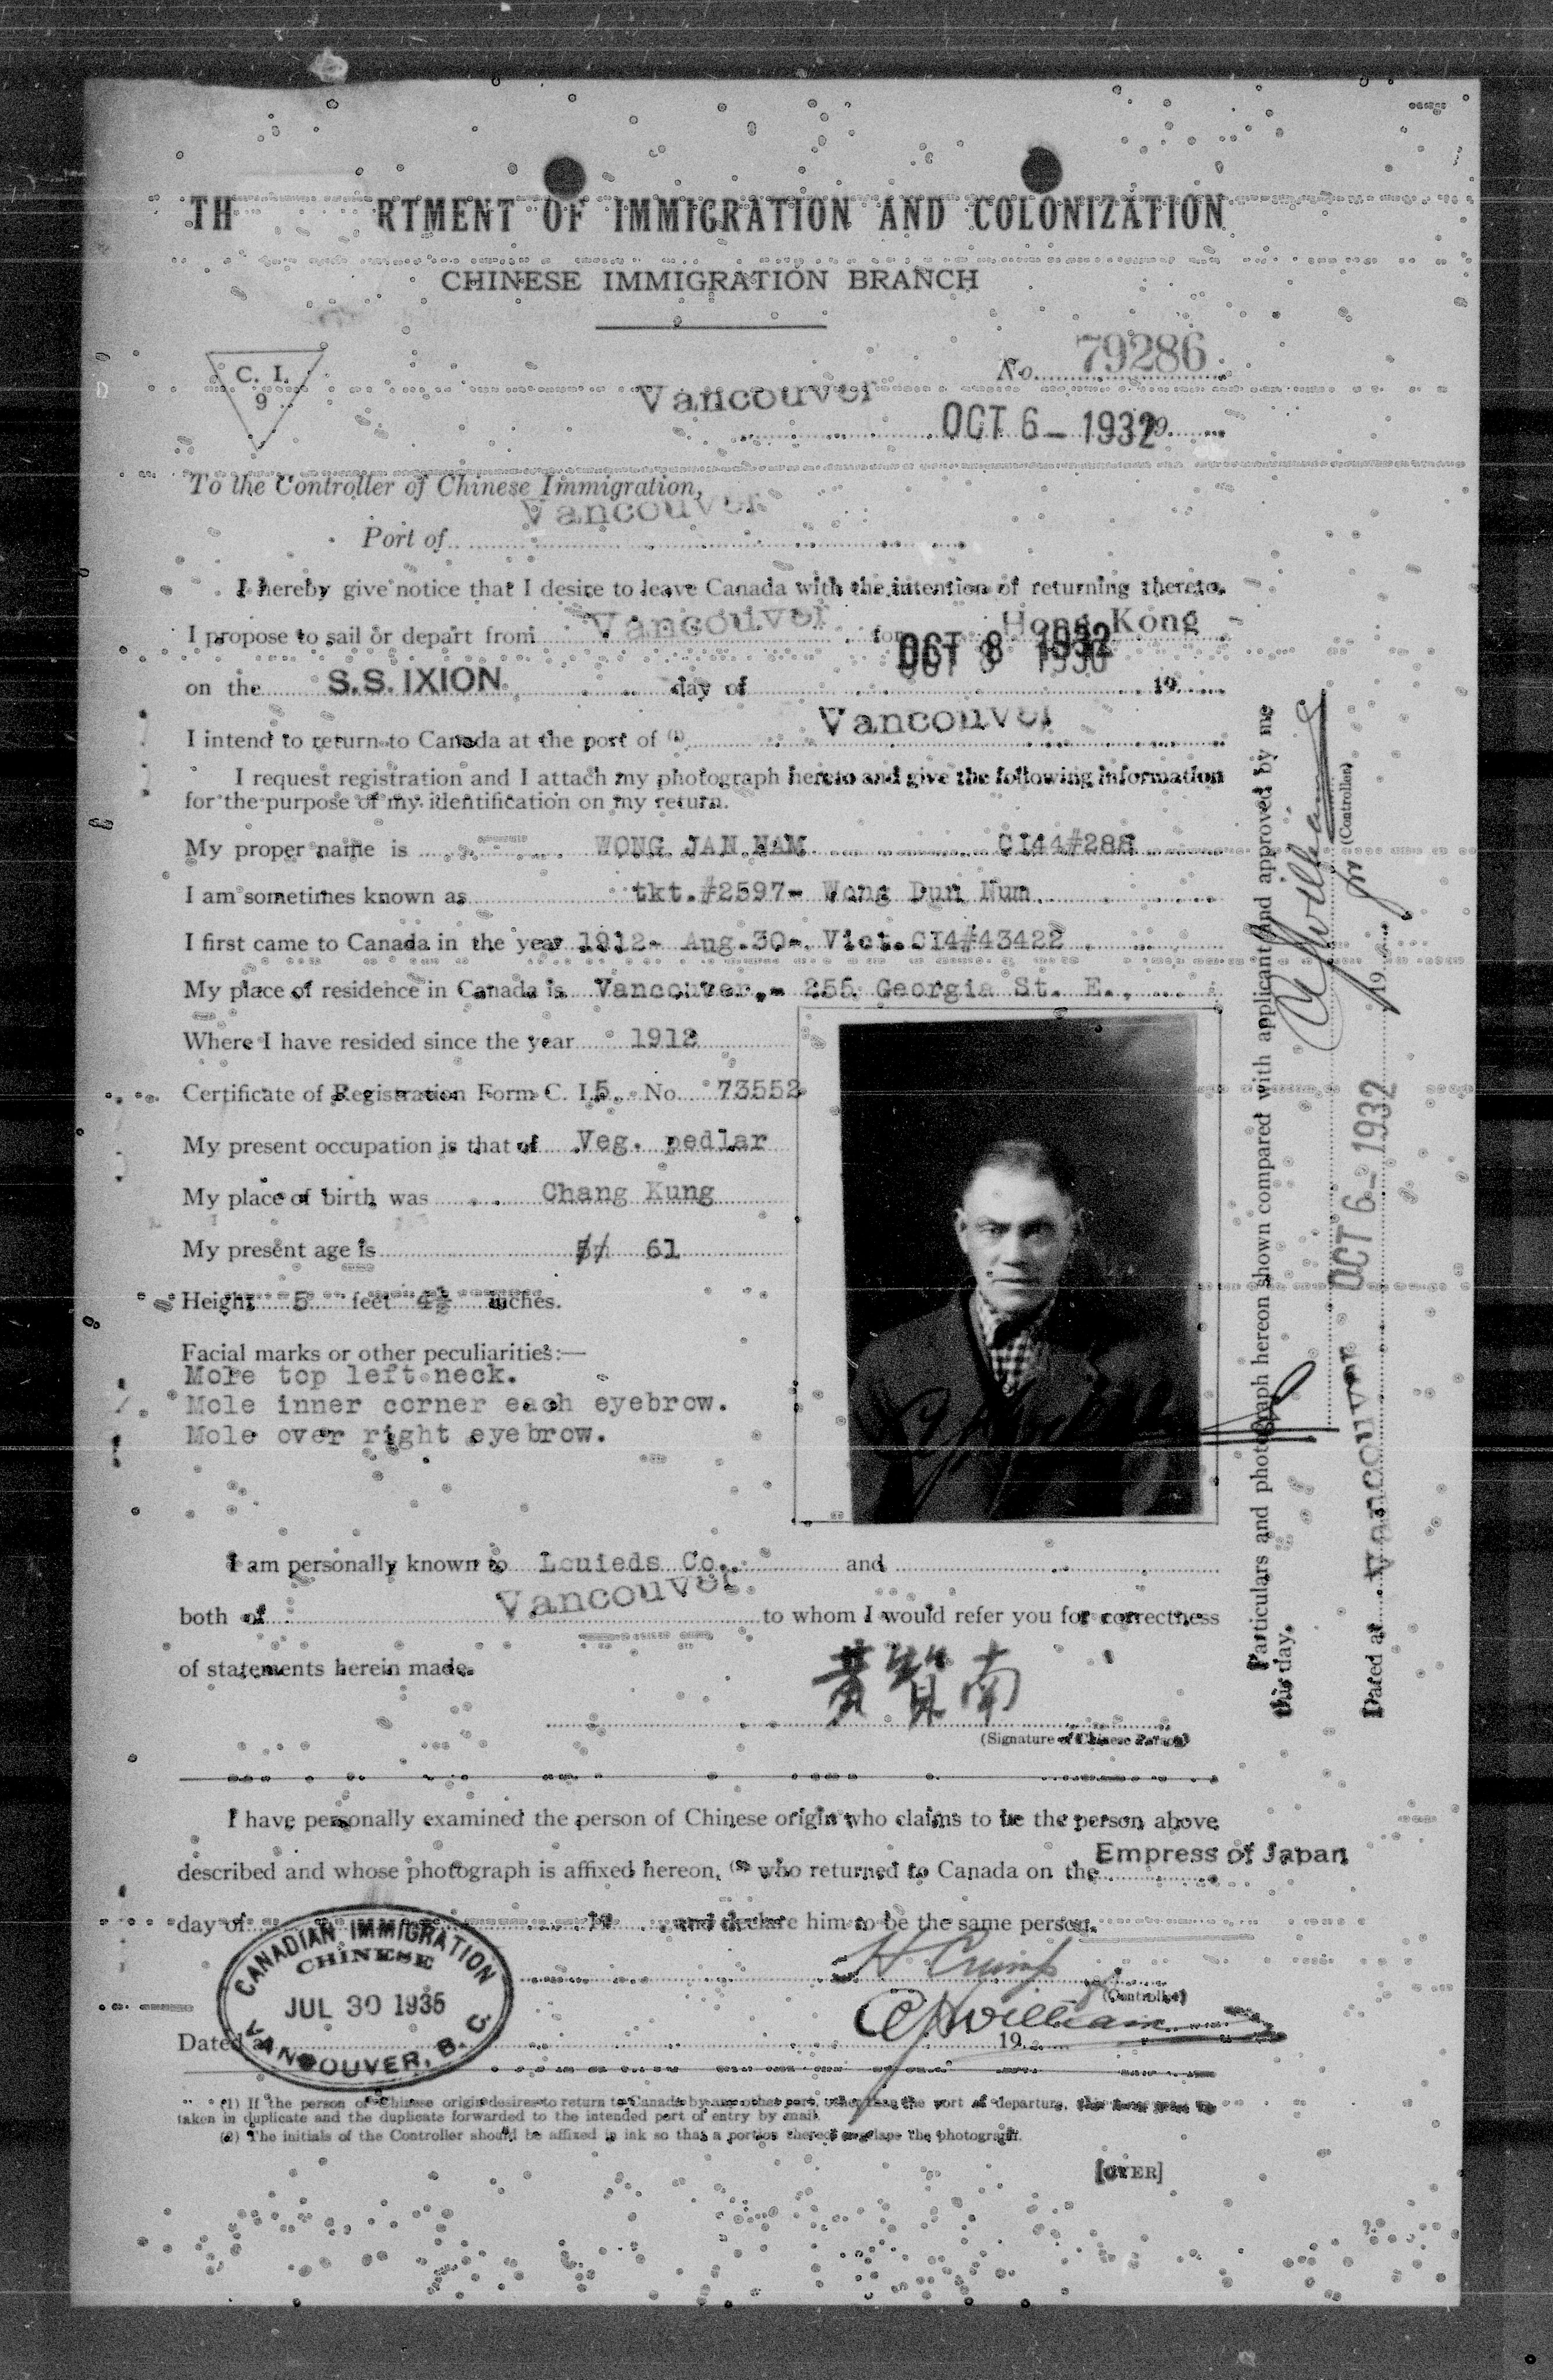 TH RTMENT OF IMMIGRATION AND COLONIZATION
CHINESE IMMIGRATION BRANCH
C. I.
9
No. 79286
Vancouver
OCT 6 - 1932 19
To the Controller of Chinese Immigration,
Port of Vancouver
I hereby give notice that I desire to leave Canada with the intention of returning thereto.
I propose to sail or depart from Vancouver for Hong Kong
on the S.S. IXION day of OCT 8 1932 19
I intend to return to Canada at the port of (1) Vancouver
I request registration and I attach my photograph hereto and give the following information
for the purpose of my identification on my return.
My proper name is WONG JAN NAM CI44#288
I am sometimes known as tkt.#2597- Wong Dun Num
I first came to Canada in the year 1912- Aug.30-. Vict.CI4#43422
My place of residence in Canada is Vancouver,- 255 Georgia St. E.,
Where I have resided since the year 1912
Certificate of Registration Form C. I. 5. No. 73552
My present occupation is that of Veg. pedlar
My place of birth was Chang Kung
My present age is 61
Height 5 feet 4½ inches.
Facial marks or other peculiarities:—
Mole top left neck.
Mole inner corner each eyebrow.
Mole over right eyebrow.
I am personally known to Louieds Co. and
both of Vancouver to whom I would refer you for correctness
of statements herein made.
黄賢南
(Signature of Chinese Person)
I have personally examined the person of Chinese origin who claims to be the person above
described and whose photograph is affixed hereon, (2) who returned to Canada on the Empress of Japan
day of 19 and declare him to be the same person.
H Crump
(Controller)
Dated at 19
CANADIAN IMMIGRATION
CHINESE
JUL 30 1935
VANCOUVER, B. C.
(1) If the person of Chinese origin desires to return to Canada by any other port, other than the port of departure, this form must be
taken in duplicate and the duplicate forwarded to the intended port of entry by mail.
(2) The initials of the Controller should be affixed in ink so that a portion thereof overlaps the photograph.
[OVER]
Particulars and photograph hereon shown compared with applicant and approved by me
this day.
(Controller)
Dated at Vancouver OCT 6 - 1932 19